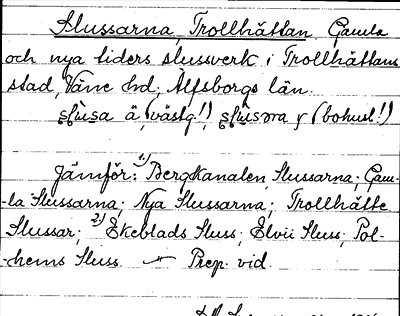 Slussarna, Trollhättan Gamla
och nya tiders slussverk i Trollhättans
stad, Väne hd; Älfsborgs län.
slùsa ä (västg!) slùsɔra f (bohusl!)
Jämför: 1) Bergkanalen, Slussarna; Gam-
-la Slussarna; Nya Slussarna; Trollhätte
Slussar; 2) Ekeblads Sluss; Elvii Sluss; Pol-
-hems Sluss. — Prep. vid.